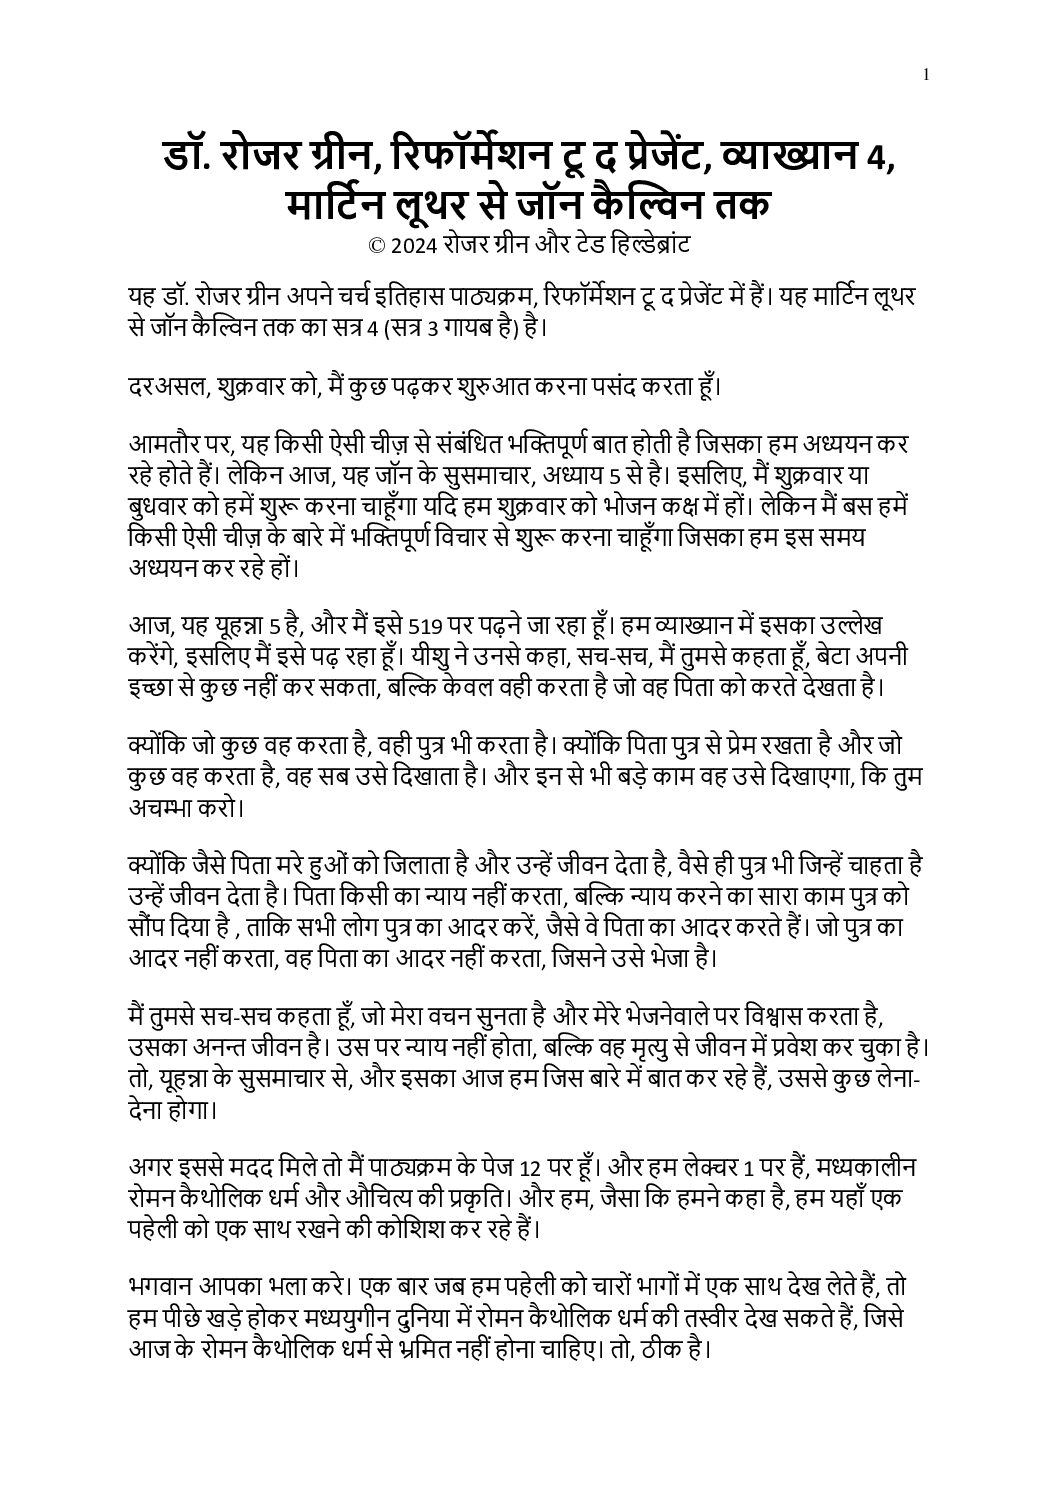 1
डॉ. रोजर ग्रीन, रिफॉर्मेशन टू द प्रेजेंट, व्याख्यान 4,
मार्टिन लूथर से जॉन कैल्विन तक
© 2024 रोजर ग्रीन और टेड हिल्डेब्रांट
यह डॉ. रोजर ग्रीन अपने चर्च इतिहास पाठ्यक्रम, रिफॉर्मेशन टू द प्रेजेंट में हैं। यह मार्टिन लूथर
से जॉन कैल्विन तक का सत्र 4 (सत्र 3 गायब है) है।
दरअसल, शुक्रवार को, मैं कुछ पढ़कर शुरुआत करना पसंद करता हूँ।
आमतौर पर, यह किसी ऐसी चीज़ से संबंधित भक्तिपूर्ण बात होती है जिसका हम अध्ययन कर
रहे होते हैं। लेकिन आज, यह जॉन के सुसमाचार, अध्याय 5 से है। इसलिए, मैं शुक्रवार या
बुधवार को हमें शुरू करना चाहूँगा यदि हम शुक्रवार को भोजन कक्ष में हों। लेकिन मैं बस हमें
किसी ऐसी चीज़ के बारे में भक्तिपूर्ण विचार से शुरू करना चाहूँगा जिसका हम इस समय
अध्ययन कर रहे हों।
आज, यह यूहन्ना 5 है, और मैं इसे 519 पर पढ़ने जा रहा हूँ। हम व्याख्यान में इसका उल्लेख
करेंगे, इसलिए मैं इसे पढ़ रहा हूँ। यीशु ने उनसे कहा, सच-सच, मैं तुमसे कहता हूँ, बेटा अपनी
इच्छा से कुछ नहीं कर सकता, बल्कि केवल वही करता है जो वह पिता को करते देखता है।
क्योंकि जो कुछ वह करता है, वही पुत्र भी करता है। क्योंकि पिता पुत्र से प्रेम रखता है और जो
कुछ वह करता है, वह सब उसे दिखाता है। और इन से भी बड़े काम वह उसे दिखाएगा, कि तुम
अचम्भा करो।
क्योंकि जैसे पिता मरे हुओं को जिलाता है और उन्हें जीवन देता है, वैसे ही पुत्र भी जिन्हें चाहता है
उन्हें जीवन देता है। पिता किसी का न्याय नहीं करता, बल्कि न्याय करने का सारा काम पुत्र को
सौंप दिया है , ताकि सभी लोग पुत्र का आदर करें, जैसे वे पिता का आदर करते हैं। जो पुत्र का
आदर नहीं करता, वह पिता का आदर नहीं करता, जिसने उसे भेजा है।
मैं तुमसे सच-सच कहता हूँ, जो मेरा वचन सुनता है और मेरे भेजनेवाले पर विश्वास करता है,
उसका अनन्त जीवन है। उस पर न्याय नहीं होता, बल्कि वह मृत्यु से जीवन में प्रवेश कर चुका है।
तो, यूहन्ना के सुसमाचार से, और इसका आज हम जिस बारे में बात कर रहे हैं, उससे कुछ लेना-
देना होगा।
अगर इससे मदद मिले तो मैं पाठ्यक्रम के पेज 12 पर हूँ। और हम लेक्चर 1 पर हैं, मध्यकालीन
रोमन कैथोलिक धर्म और औचित्य की प्रकृति। और हम, जैसा कि हमने कहा है, हम यहाँ एक
पहेली को एक साथ रखने की कोशिश कर रहे हैं।
भगवान आपका भला करे। एक बार जब हम पहेली को चारों भागों में एक साथ देख लेते हैं, तो
हम पीछे खड़े होकर मध्ययुगीन दुनिया में रोमन कैथोलिक धर्म की तस्वीर देख सकते हैं, जिसे
आज के रोमन कैथोलिक धर्म से भ्रमित नहीं होना चाहिए। तो, ठीक है।